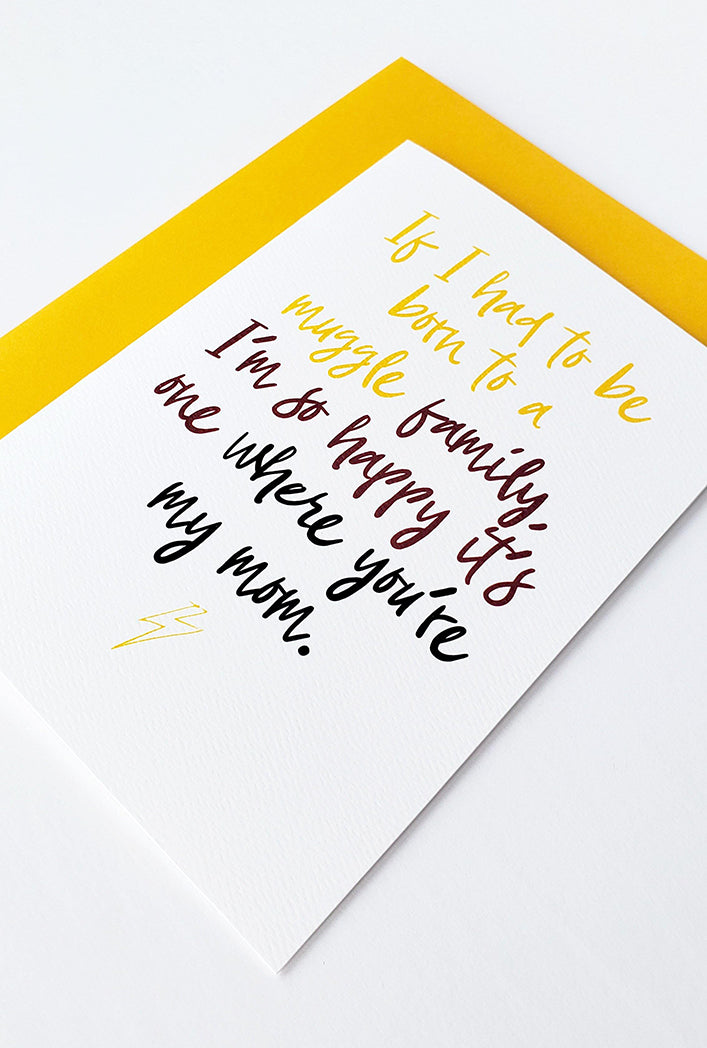 If I had to be
born to a
muggle family,
I'm so happy it's
one where you're
my mom.